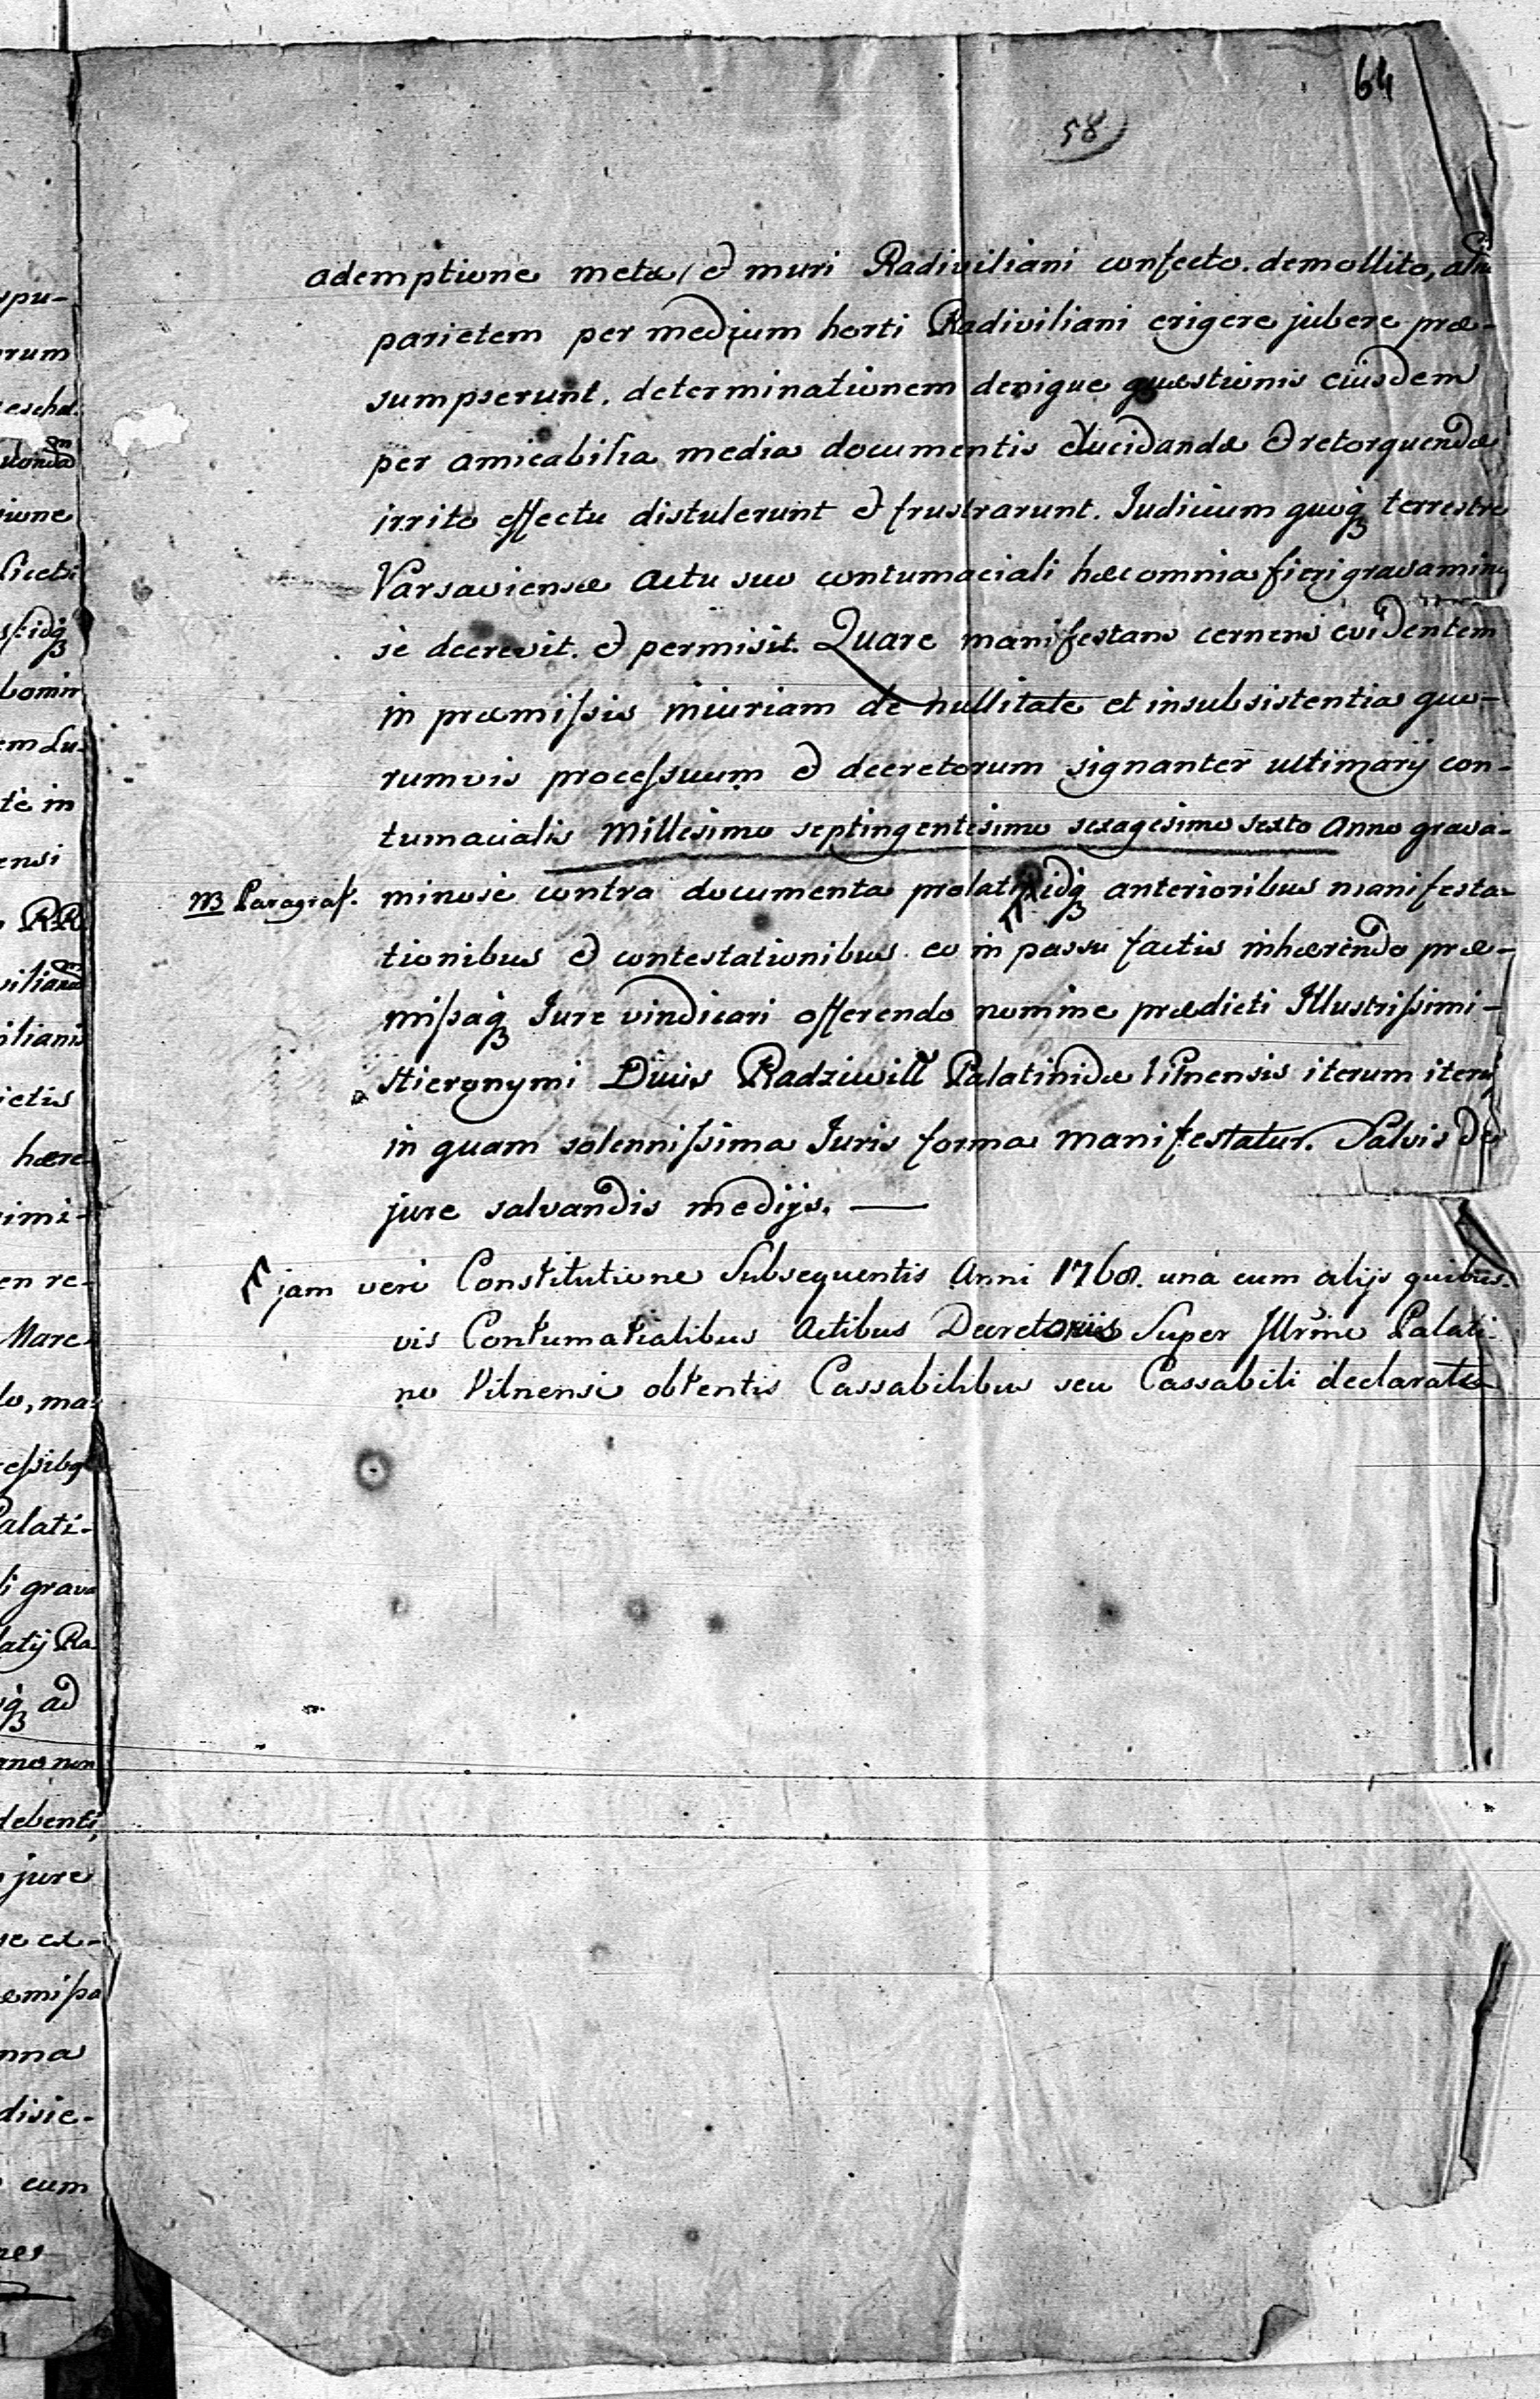 64
58
ademptione meta, & muri Radiviliani confecto. demollito,
parietem per medium horti Radiviliani erigere jubere præ-
sumpserunt. determinationem denique quæstionis eiusdem
per amicabilia media documentis elucidandæ & retorquendæ
irrito effectu distulerunt & frustrarunt. Iudicium quoq3 terrestre
Varsaviense actu suo contumaciali hæc omnia fieri gravamino
sè decrevit. & permisit. Quare manifestans cernens evidentem
in præmissis iniuriam de nullitate et insubsistentia quo-
rumvis processuum & decretorum signanter ultimarij con-
tumacialis Millesimo septingentesimo sexagesimo sexto Anno grava-
NB Paragraf. minosè contra documenta prolati idq3 anterioribus manifesta-
tionibus & contestationibus eo in passu factis inhærendo præ-
missaq3 Iure vindicari offerendo nomine prædicti Illustrissimi-
Hieronymi Ducis Radziwill Palatinidæ Vilnensis iterum iterū
in quam solennissima Iuris forma manifestatur. Salvis de
jure salvandis medijs. —
jam verò Constitutione Subsequentis Anni 1768. unà cum alijs quibus-
vis Contumatialibus Actibus Decretoriis Super Illrmo Palati-
no Vilnensi obtentis Cassabilibus seu Cassabili declarata
spu-
orum
sione
Licet
bomin
em Lu-
tè in
ensi
RR
viliana
ilianis
ictis
hære
simi-
en re-
Mare
do, ma-
Palati-
li grava
latij Ra
ad
ano non
debenti
jure
se ex-
emissa
nna
disie-
cum